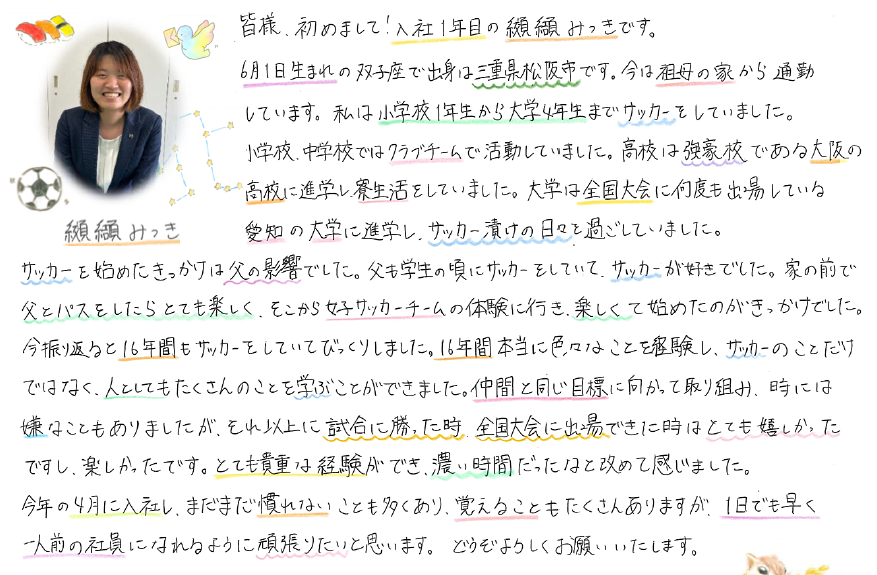 皆様、初めまして!入社1年目の纐纈みっきです。
6月1日生まれの双子座で出身は三重県松阪市です。今は祖母の家から通勤
しています。私は小学校1年生から大学4年生までサッカーをしていました。
小学校、中学校ではクラブチームで活動していました。高校は強豪校である大阪の
高校に進学し寮生活をしていました。大学は全国大会に何度も出場している
愛知の大学に進学し、サッカー漬けの日々を過ごしていました。
纐纈みっき
サッカーを始めたきっかけは父の影響でした。父も学生の頃にサッカーをしていて、サッカーが好きでした。家の前で
父とパスをしたらとても楽しく、そこから女子サッカーチームの体験に行き、楽しくて始めたのがきっかけでした。
今振り返ると16年間もサッカーをしていてびっくりしました。16年間本当に色々なことを経験し、サッカーのことだけ
ではなく、人としてもたくさんのことを学ぶことができました。仲間と同じ目標に向かって取り組み、時には
嫌なこともありましたが、それ以上に試合に勝った時、全国大会に出場できた時はとても嬉しかった
ですし、楽しかったです。とても貴重な経験ができ、濃い時間だったなと改めて感じました。
今年の4月に入社し、まだまだ慣れないことも多くあり、覚えることもたくさんありますが、1日でも早く
一人前の社員になれるように頑張りたいと思います。 どうぞよろしくお願いいたします。